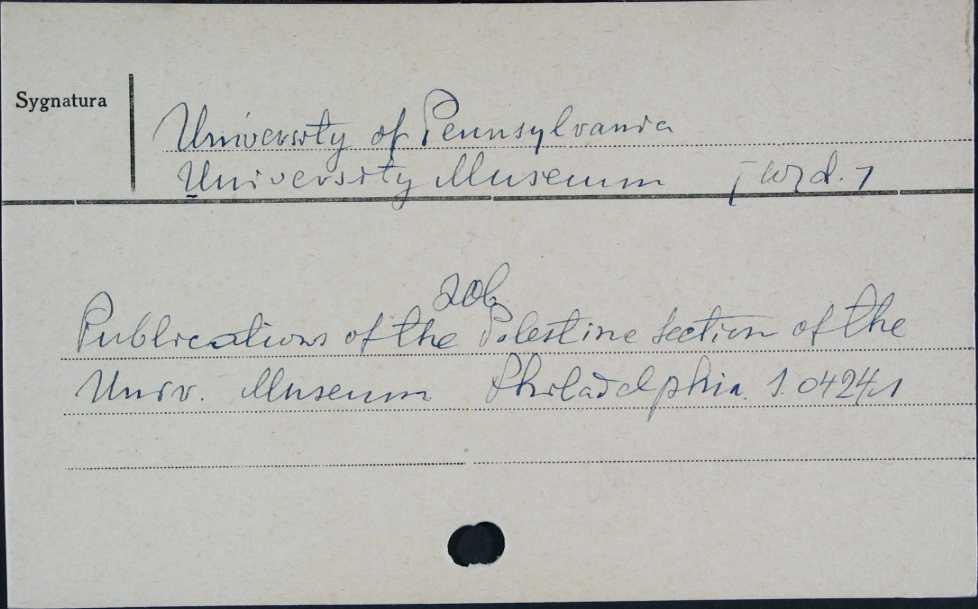 Sygnatura
University of Pennsylvania
University Museum [wyd.]
zob
Publications of the Palestine Section of the
Univ. Museum Philadelphia.